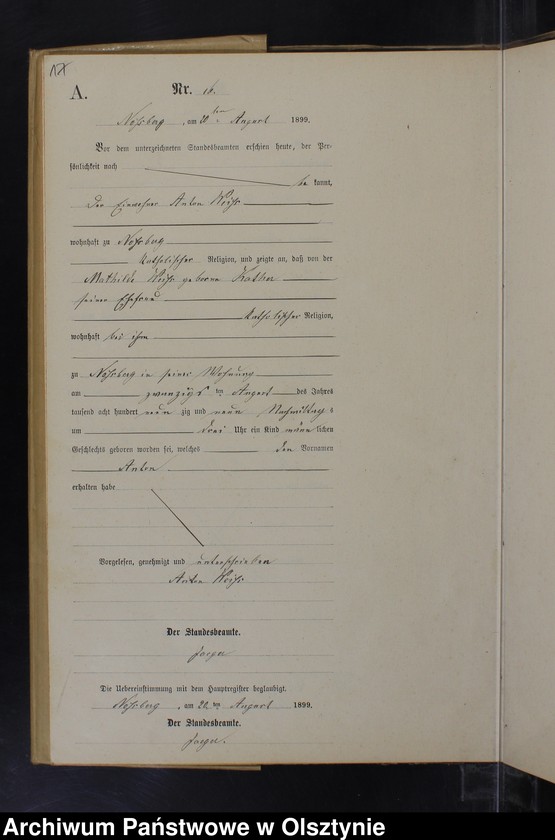 17
A.
Nr. 16.
Noßberg, am 20 ten August 1899.
Vor dem unterzeichneten Standesbeamten erschien heute, der Per-
sönlichkeit nach
be kannt,
der Einwohner Anton Weiß
wohnhaft zu Noßberg
katholischer Religion, und zeigte an, daß von der
Mathilde Weiß geborene
seiner Ehefrau
katholischer Religion,
wohnhaft bei ihm
zu Noßberg in seiner Wohnung
am zwanzigs ten August des Jahres
tausend acht hundert neun zig und neun Nachmittag s
um drei Uhr ein Kind männ lichen
Geschlechts geboren worden sei, welches den Vornamen
Anton
erhalten habe
Vorgelesen, genehmigt und unterschrieben
Anton Weiß
Der Standesbeamte.
Die Uebereinstimmung mit dem Hauptregister beglaubigt.
Noßberg, am ten August 1899.
Der Standesbeamte.
Archiwum Państwowe w Olsztynie